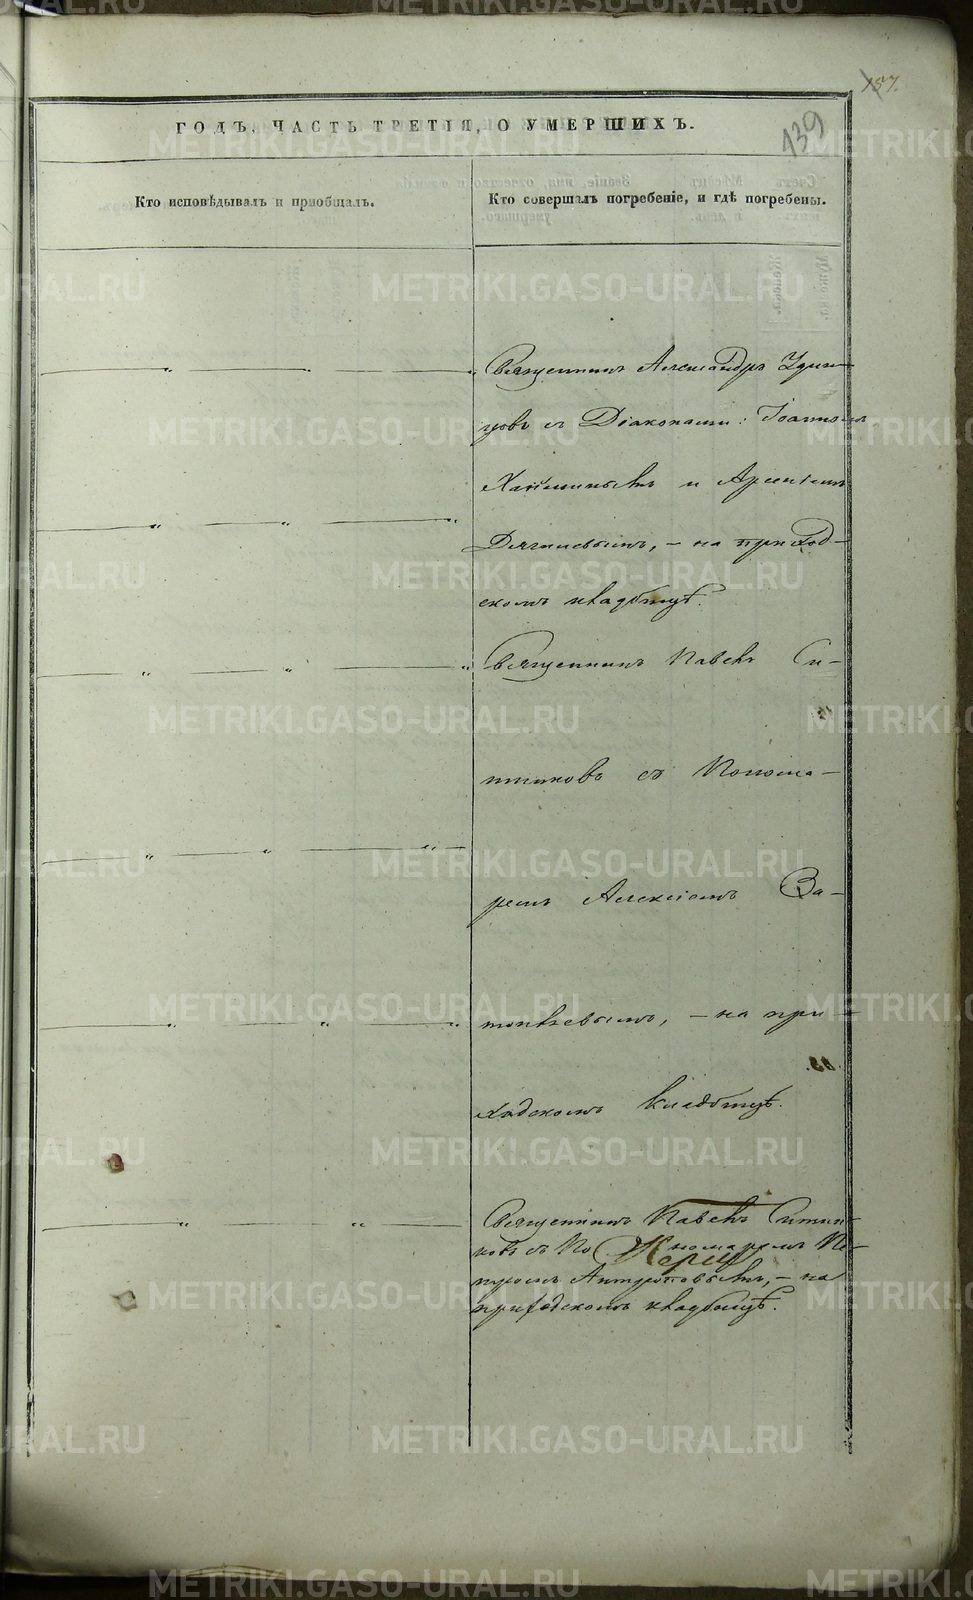 157.
139
ГОДЪ, ЧАСТЬ ТРЕТІЯ, О УМЕРШИХЪ.
Кто исповѣдывалъ и пріобщалъ.
Кто совершалъ погребеніе, и гдѣ погребены.
Священникъ Александръ Удин-
цовъ съ Діаконами: Іоанномъ
и Арсеніемъ
Дягилевымъ, – на приход-
скомъ кладбищѣ.
Священникъ Павелъ Си-
тниковъ съ Понома-
ремъ Алексіемъ За-
– на при-
ходскомъ кладбищѣ.
Священникъ Павелъ Ситни-
ковъ съ По номаремъ Пе-
тромъ Антроповымъ, – на
приходскомъ кладбищѣ.
METRIKI.GASO-URAL.RU